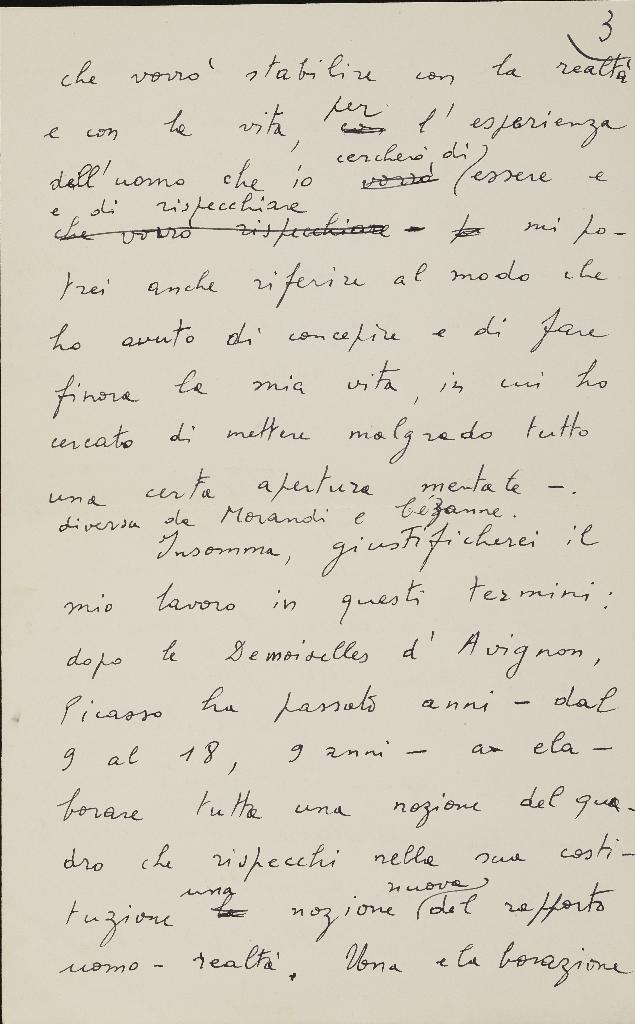 3
che vorrò stabilire con la realtà
e con la vita, per
co l'esperienza
cercherò di
dell'uomo che io vorrò (essere e
e di rispecchiare
che vorrò rispecchiare - mi po-
trei anche riferire al modo che
ho avuto di concepire e di fare
finora la mia vita, in cui ho
cercato di mettere malgrado tutto
una certa apertura mentale -.
diversa da Morandi e Cézanne.
Insomma, giustificherei il
mio lavoro in questi termini:
dopo le Demoiselles d'Avignon,
Picasso ha passato anni - dal
9 al 18, 9 anni - a ela-
borare tutta una nozione del qua-
dro che rispecchi nella sua costi-
una nuova
tuzione la nozione (del rapporto
uomo - realtà. Una elaborazione